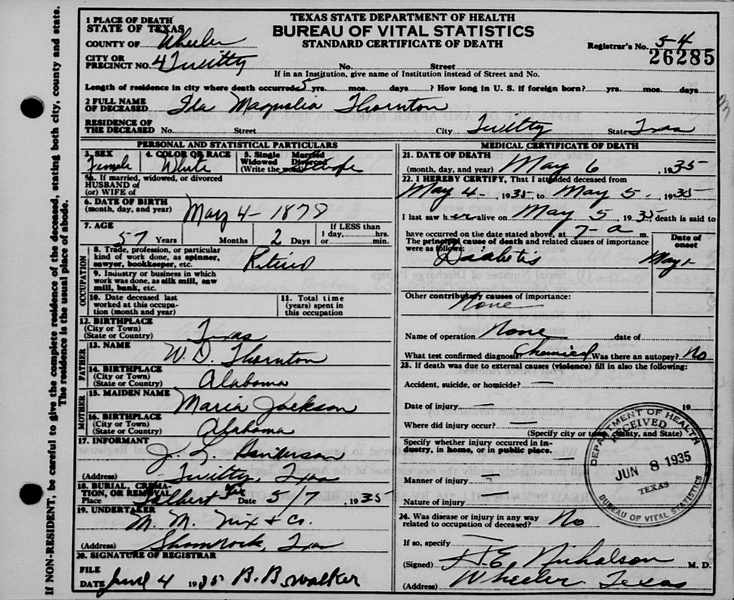 TEXAS STATE DEPARTMENT OF HEALTH
BUREAU OF VITAL STATISTICS
STANDARD CERTIFICATE OF DEATH
1 PLACE OF DEATH
STATE OF TEXAS
COUNTY OF Wheeler
CITY OR PRECINCT NO. 4 Twitty No. Street
Registrar's No. 54
26285
If in an Institution, give name of Institution instead of Street and No.
Length of residence in city where death occurred yrs. mos. days? How long in U. S. if foreign born? yrs. mos. days
2 FULL NAME OF DECEASED Ila Magnolia Thornton
RESIDENCE OF THE DECEASED No. Street City Twitty State Texas
PERSONAL AND STATISTICAL PARTICULARS
3. SEX Female
4. COLOR OR RACE White
5. Single Married Widowed Divorced (Write the word)
5a. If married, widowed, or divorced
HUSBAND of
(or) WIFE of
6. DATE OF BIRTH
(month, day, and year) May 4 - 1878
7. AGE 57 Years Months 2 Days If LESS than 1 day, hrs. or min.
OCCUPATION
8. Trade, profession, or particular kind of work done, as spinner, sawyer, bookkeeper, etc. Retired
9. Industry or business in which work was done, as silk mill, saw mill, bank, etc.
10. Date deceased last worked at this occupation (month and year)
11. Total time (years) spent in this occupation
12. BIRTHPLACE
(City or Town)
(State or Country) Texas
FATHER
13. NAME W. D. Thornton
14. BIRTHPLACE
(City or Town)
(State or Country) Alabama
MOTHER
15. MAIDEN NAME Maria Jackson
16. BIRTHPLACE
(City or Town)
(State or Country) Alabama
17. INFORMANT J. L.
(Address) Twitty, Texas
18. BURIAL, CREMATION, OR REMOVAL
Place Date 5/7 1935
19. UNDERTAKER M. M. Nix & Co.
(Address) Shamrock, Texas
20. SIGNATURE OF REGISTRAR
FILE DATE June 4 1935 B. B. Walker
MEDICAL CERTIFICATE OF DEATH
21. DATE OF DEATH
(month, day, and year) May 6 1935
22. I HEREBY CERTIFY, That I attended deceased from
May 4 - 1935 to May 5, 1935
I last saw her alive on May 5 1935 death is said to
have occurred on the date stated above, at 7-a m.
The principal cause of death and related causes of importance were as follows:
Date of onset
Diabetis May 1
Other contributory causes of importance:
None
Name of operation None date of
What test confirmed diagnosis? Chemical Was there an autopsy? No
23. If death was due to external causes (violence) fill in also the following:
Accident, suicide, or homicide? —
Date of injury — 19
Where did injury occur? —
(Specify city or town, county, and State)
Specify whether injury occurred in industry, in home, or in public place.
Manner of injury —
Nature of injury —
24. Was disease or injury in any way related to occupation of deceased? No
If so, specify —
(Signed) H. E. Nicholson M. D.
(Address) Wheeler Texas
DEPARTMENT OF HEALTH
RECEIVED
JUN 8 1935
TEXAS
BUREAU OF VITAL STATISTICS
If NON-RESIDENT, be careful to give the complete residence of the deceased, stating both city, county and state.
The residence is the usual place of abode.